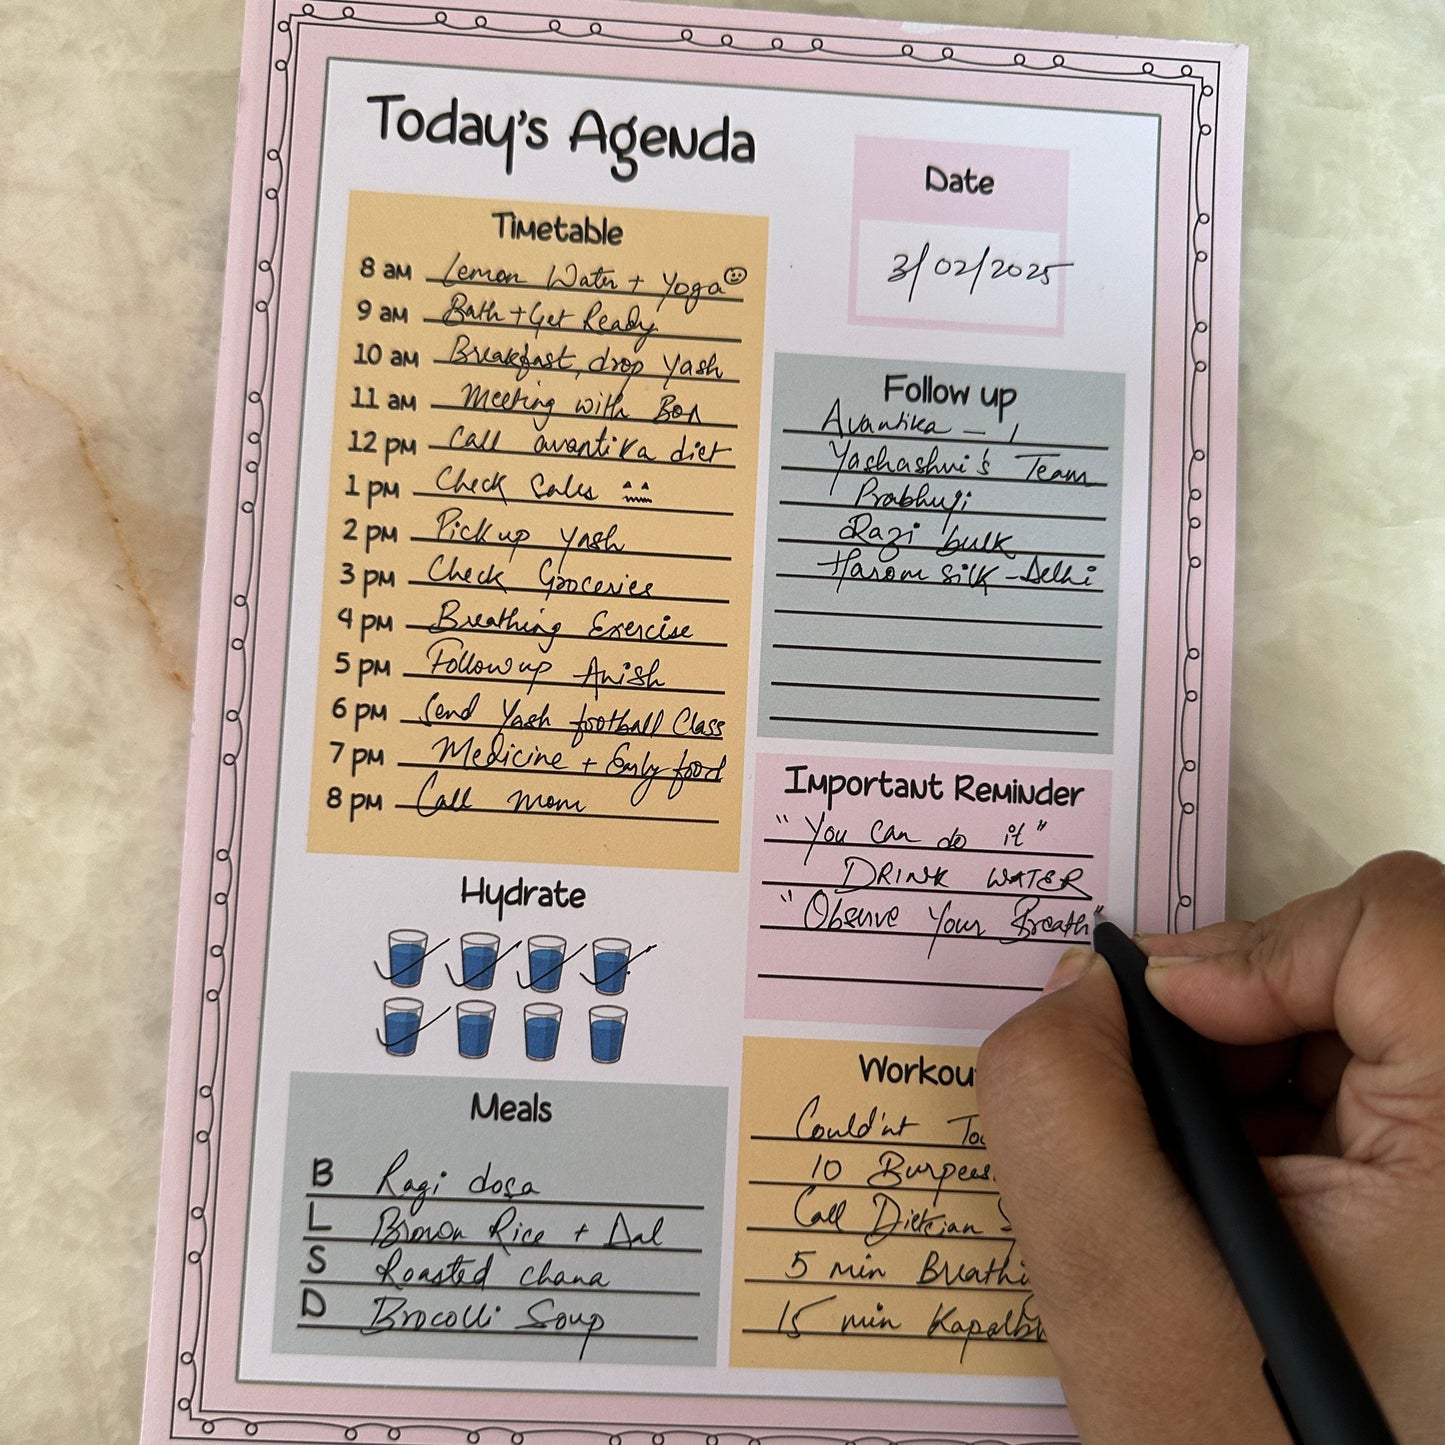 Today's Agenda
Date
3/02/2025
Timetable
8 am Lemon Water + Yoga
9 am Bath + Get Ready
10 am Breakfast, drop Yash
11 am Meeting with Bon
12 pm Call avantika diet
1 pm Check Sales
2 pm Pick up Yash
3 pm Check Groceries
4 pm Breathing Exercise
5 pm Follow up Anish
6 pm Send Yash football Class
7 pm Medicine + Early food
8 pm Call mom
Follow up
Avantika - 1
Yashashvi's Team
Prabhuji
Razi bulk
Harom Silk - Delhi
Important Reminder
"You can do it"
DRINK WATER
"Observe Your Breath"
Hydrate
Meals
B Ragi dosa
L Brown Rice + Dal
S Roasted chana
D Brocolli Soup
Could'nt
10 Burpees.
Call Dietician
5 min
15 min